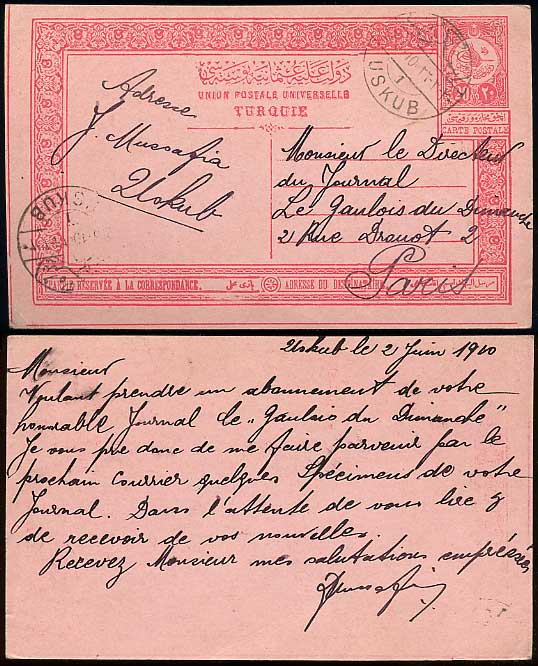 دولت عليۀ عثمانيه پوسته‌سى
UNION POSTALE UNIVERSELLE
TURQUIE
CARTE POSTALE
USKUB
1
٢٠
Adresse
J. Mussafia
Uskub
Monsieur le Directeur
du Journal
Le Gaulois du Dimanche
2 Rue Drouot 2
Paris
USKUB
1
PARTIE RÉSERVÉE À LA CORRESPONDANCE.
ADRESSE DU DESTINATAIRE.
Uskub le 2 Juin 1910
Monsieur
Voulant prendre un abonnement de votre
honorable Journal le „Gaulois du Dimanche"
Je vous prie donc de me faire parvenir par le
prochain courrier quelques Spécimens de votre
Journal. Dans l'attente de vous lire &
de recevoir de vos nouvelles.
Recevez Monsieur mes salutations empressées
JMussafia